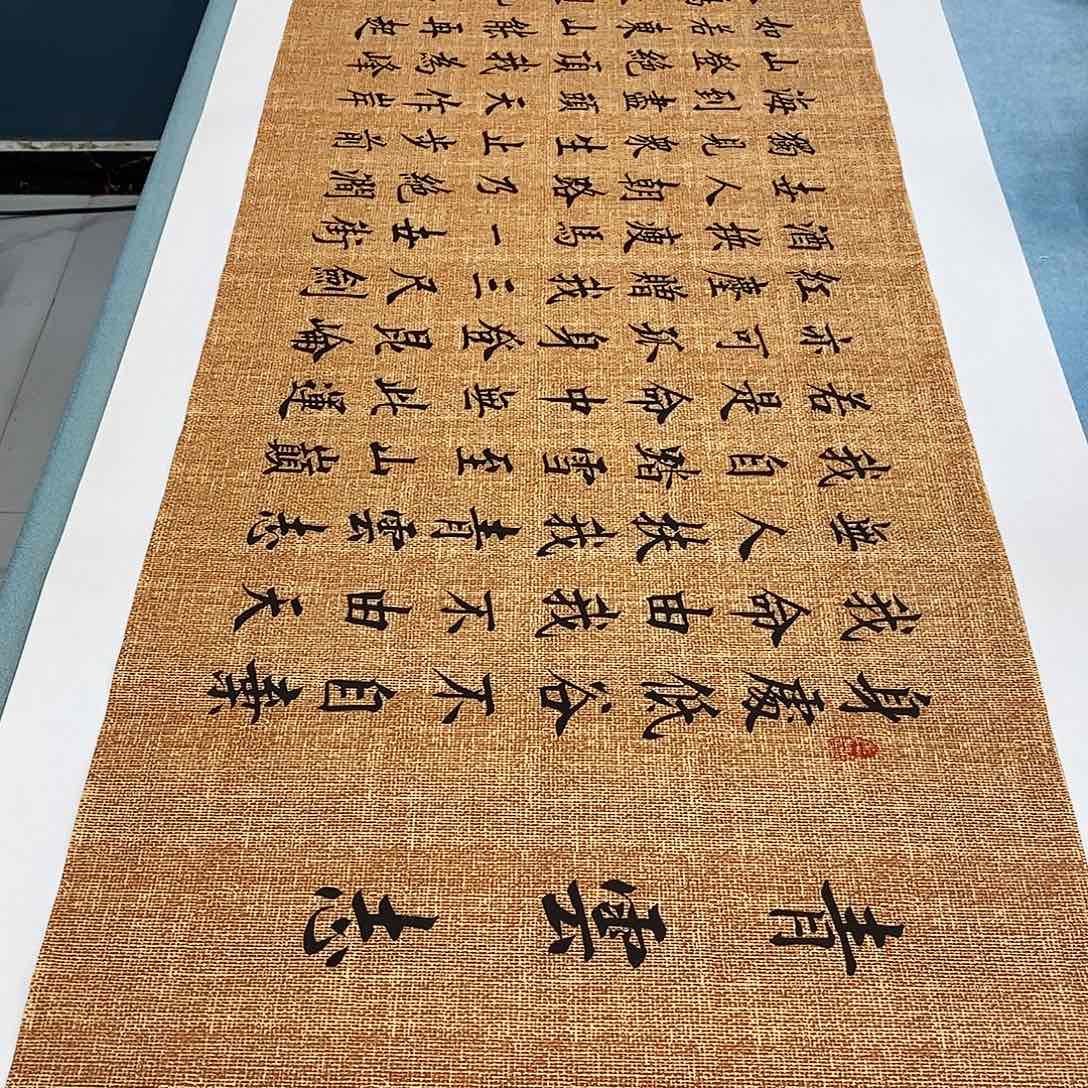 青雲志
身處低谷不自棄
我命由我不由天
無人扶我青雲志
我自踏雪至山巔
若是命中無此運
亦可孤身登昆崙
紅塵贈我三尺劍
酒換瘦馬一世街
世人朝路乃絕澗
獨見眾生止步前
海到盡頭天作岸
山登絕頂我為峰
如若東山能再起